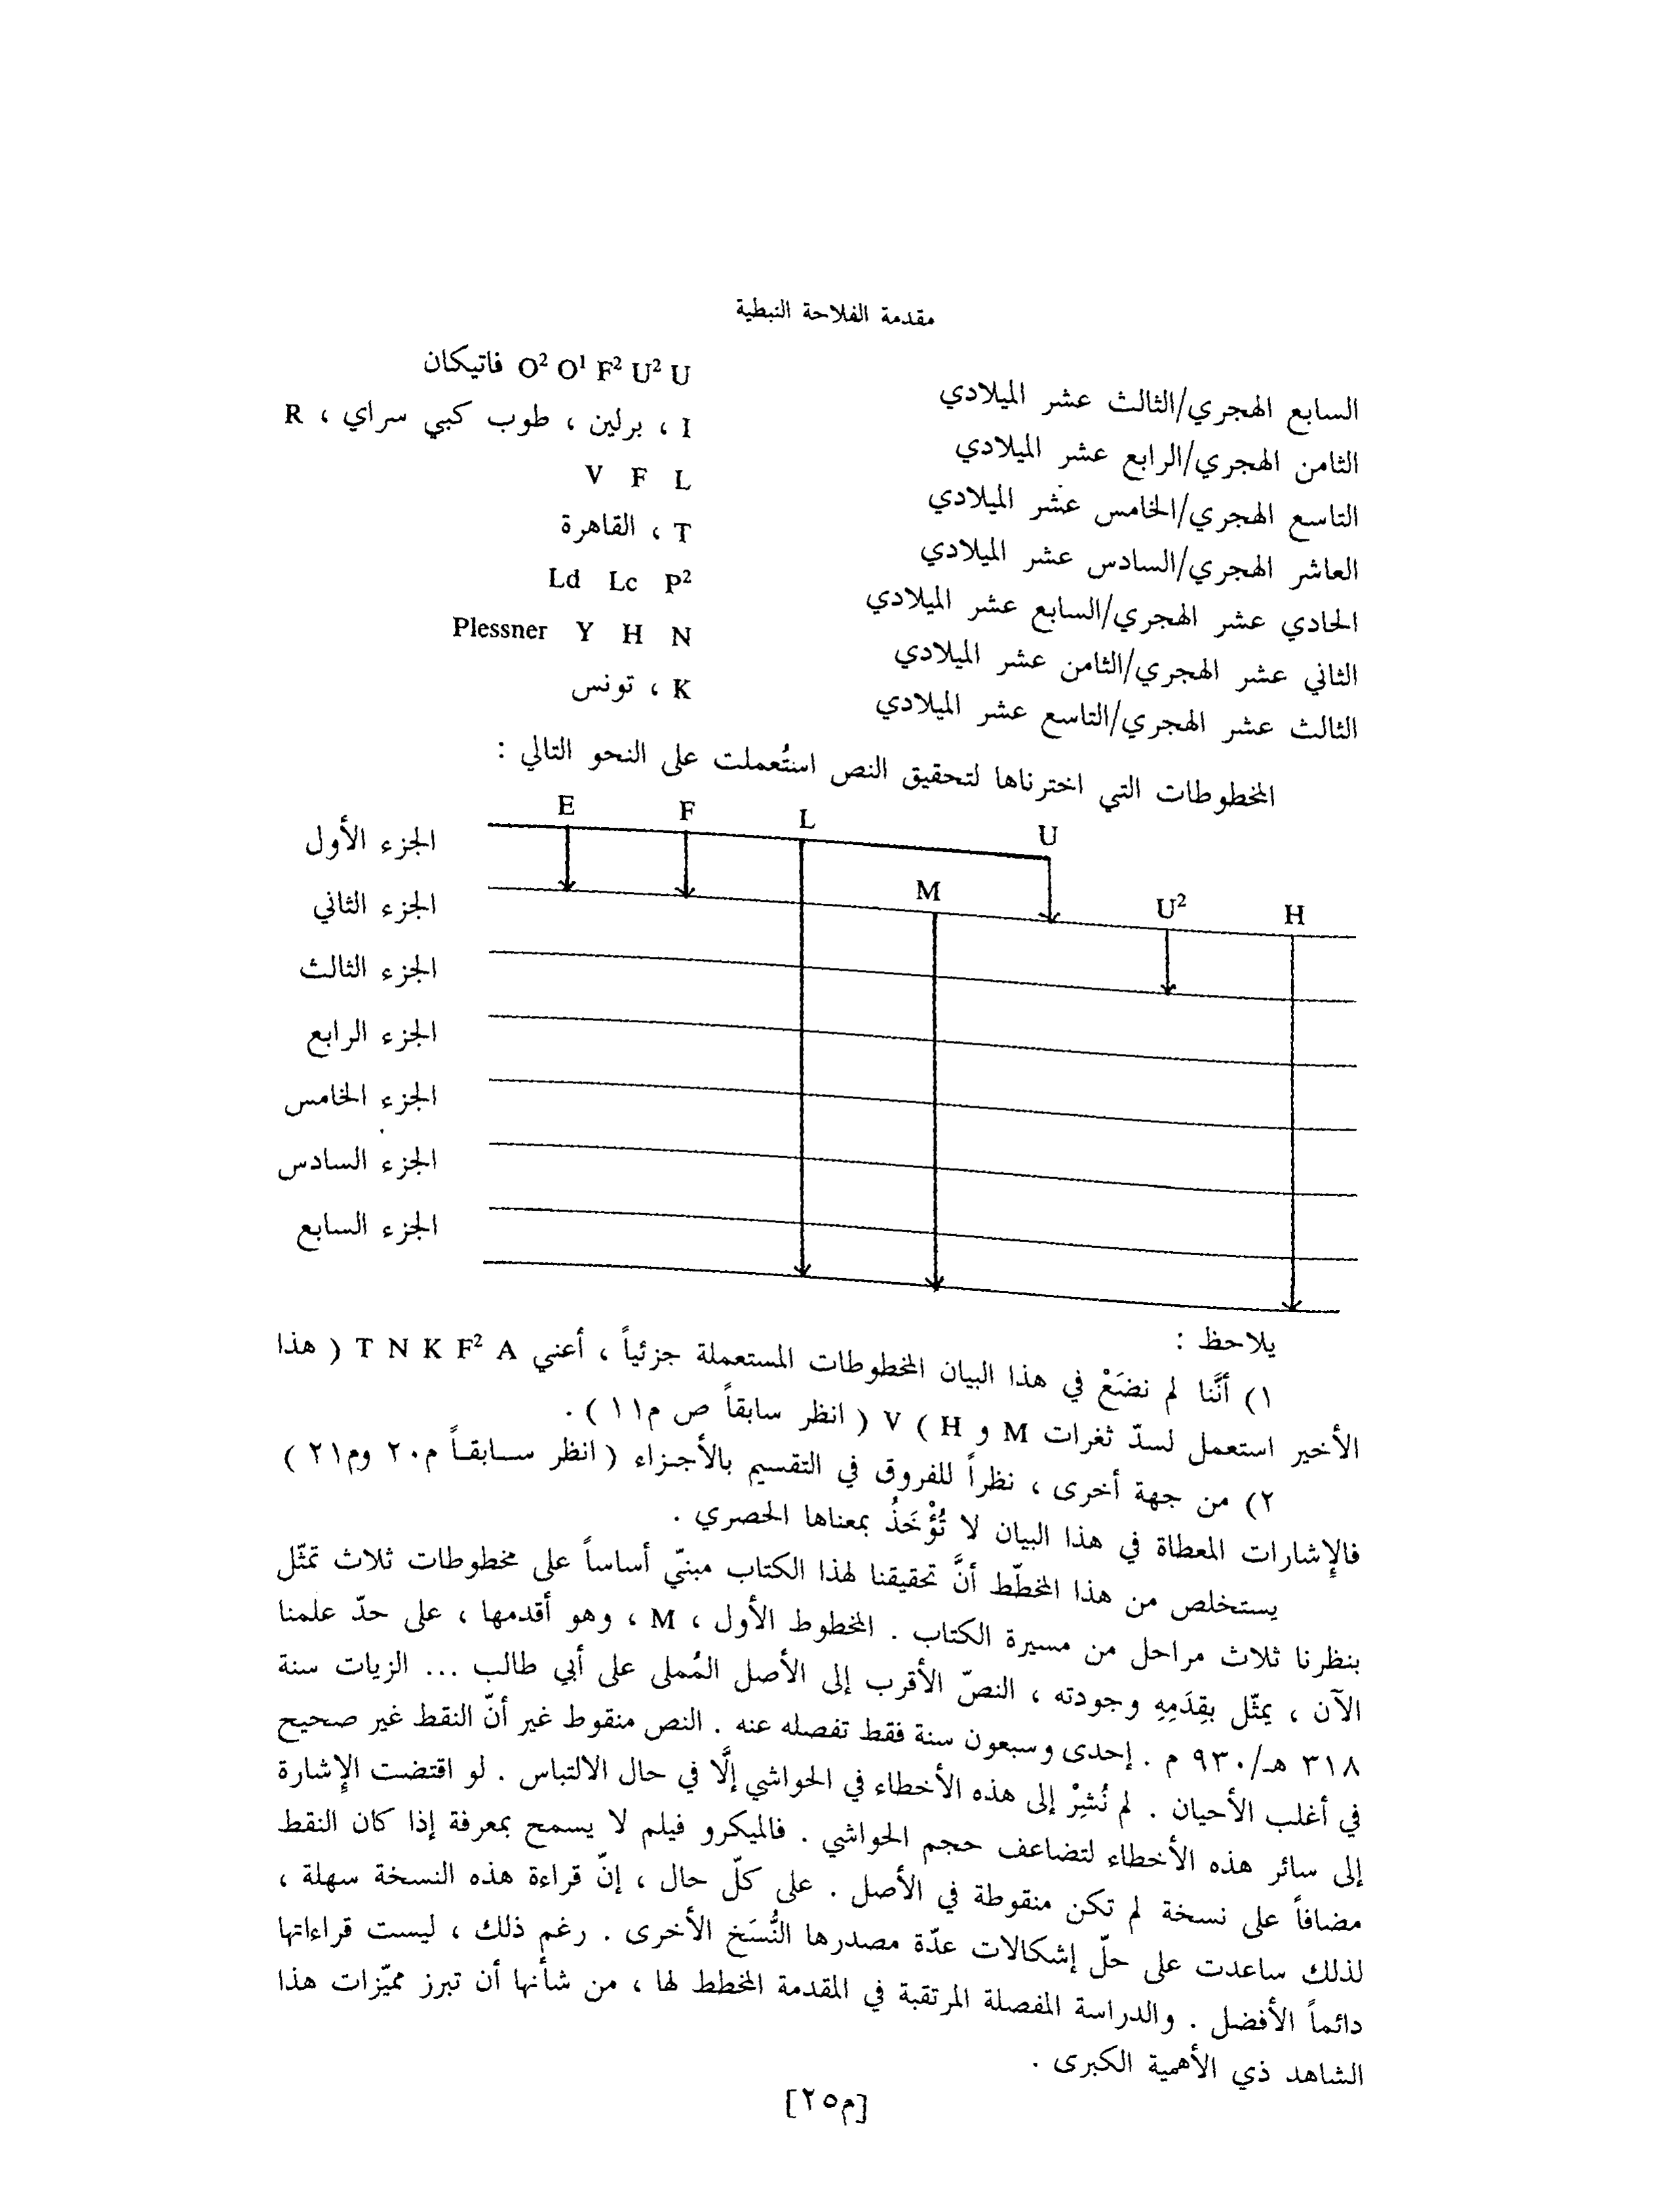 مقدمة الفلاحة النبطية
السابع الهجري/الثالث عشر الميلادي U U² F² O¹ O² فاتيكان
الثامن الهجري/الرابع عشر الميلادي I ، برلين ، طوب كبي سراي ، R
التاسع الهجري/الخامس عشر الميلادي L F V
العاشر الهجري/السادس عشر الميلادي T ، القاهرة
الحادي عشر الهجري/السابع عشر الميلادي P² Lc Ld
الثاني عشر الهجري/الثامن عشر الميلادي N H Y Plessner
الثالث عشر الهجري/التاسع عشر الميلادي K ، تونس
المخطوطات التي اخترناها لتحقيق النص استُعملت على النحو التالي :
E F L U
الجزء الأول
M U² H
الجزء الثاني
الجزء الثالث
الجزء الرابع
الجزء الخامس
الجزء السادس
الجزء السابع
يلاحظ :
١) أنَّنا لم نضَعْ في هذا البيان المخطوطات المستعملة جزئياً ، أعني T N K F² A ( هذا
الأخير استعمل لسدّ ثغرات M و H ) V ( انظر سابقاً ص م١١ ) .
٢) من جهة أخرى ، نظراً للفروق في التقسيم بالأجزاء ( انظر سابقاً م٢٠ وم٢١ )
فالإشارات المعطاة في هذا البيان لا تُؤْخَذُ بمعناها الحصري .
يستخلص من هذا المخطّط أنَّ تحقيقنا لهذا الكتاب مبنيّ أساساً على مخطوطات ثلاث تمثّل
بنظرنا ثلاث مراحل من مسيرة الكتاب . المخطوط الأول ، M ، وهو أقدمها ، على حدّ علمنا
الآن ، يمثّل بقِدَمِهِ وجودته ، النصّ الأقرب إلى الأصل المُملى على أبي طالب ... الزيات سنة
٣١٨ هـ/٩٣٠ م . إحدى وسبعون سنة فقط تفصله عنه . النص منقوط غير أنّ النقط غير صحيح
في أغلب الأحيان . لم نُشِرْ إلى هذه الأخطاء في الحواشي إلَّا في حال الالتباس . لو اقتضت الإشارة
إلى سائر هذه الأخطاء لتضاعف حجم الحواشي . فالميكرو فيلم لا يسمح بمعرفة إذا كان النقط
مضافاً على نسخة لم تكن منقوطة في الأصل . على كلّ حال ، إنّ قراءة هذه النسخة سهلة ،
لذلك ساعدت على حلّ إشكالات عدّة مصدرها النُّسَخ الأخرى . رغم ذلك ، ليست قراءاتها
دائماً الأفضل . والدراسة المفصلة المرتقبة في المقدمة المخطط لها ، من شأنها أن تبرز مميّزات هذا
الشاهد ذي الأهمية الكبرى .
[م٢٥]